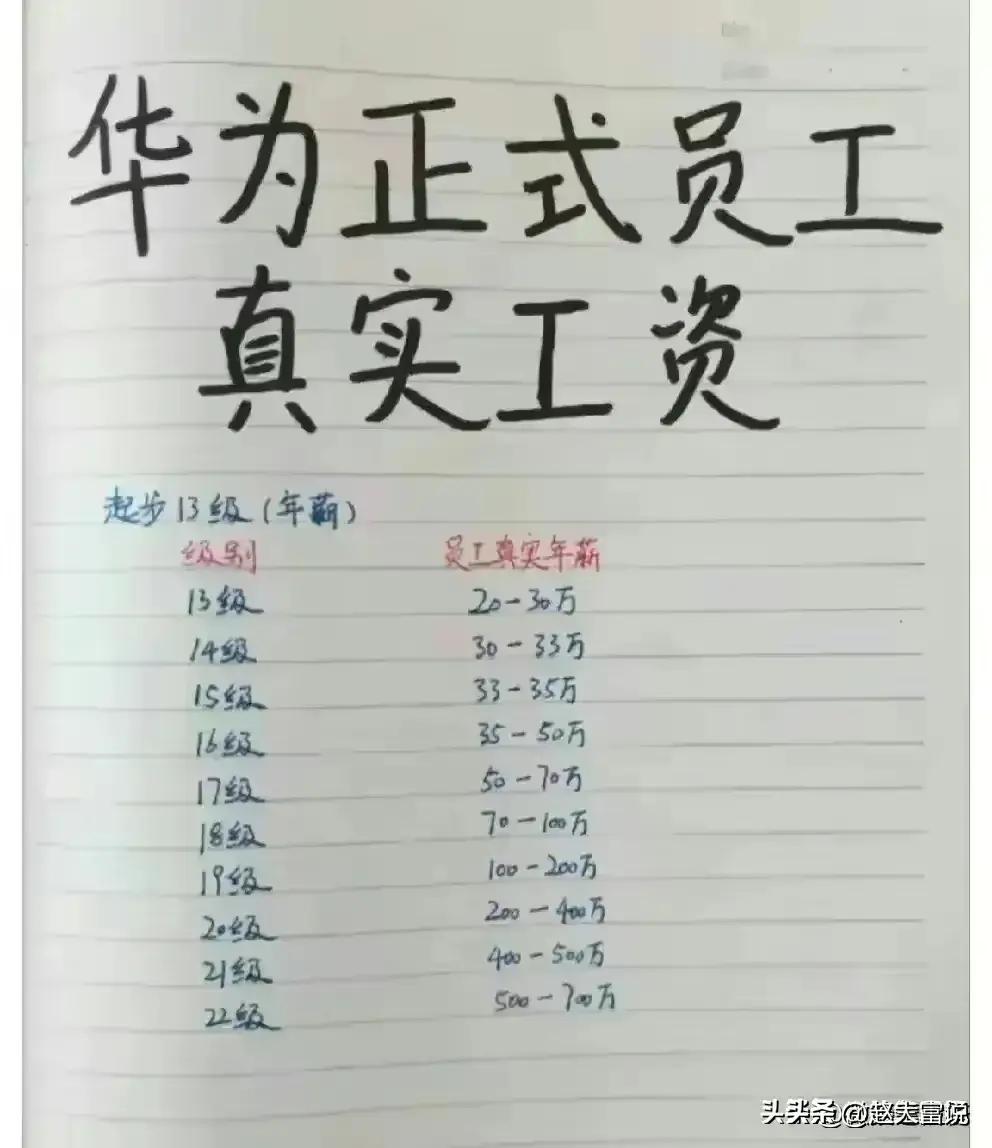 华为正式员工
真实工资
起步13级(年薪)
级别 员工真实年薪
13级 20-30万
14级 30-33万
15级 33-35万
16级 35-50万
17级 50-70万
18级 70-100万
19级 100-200万
20级 200-400万
21级 400-500万
22级 500-700万
头条 @赵夫富说